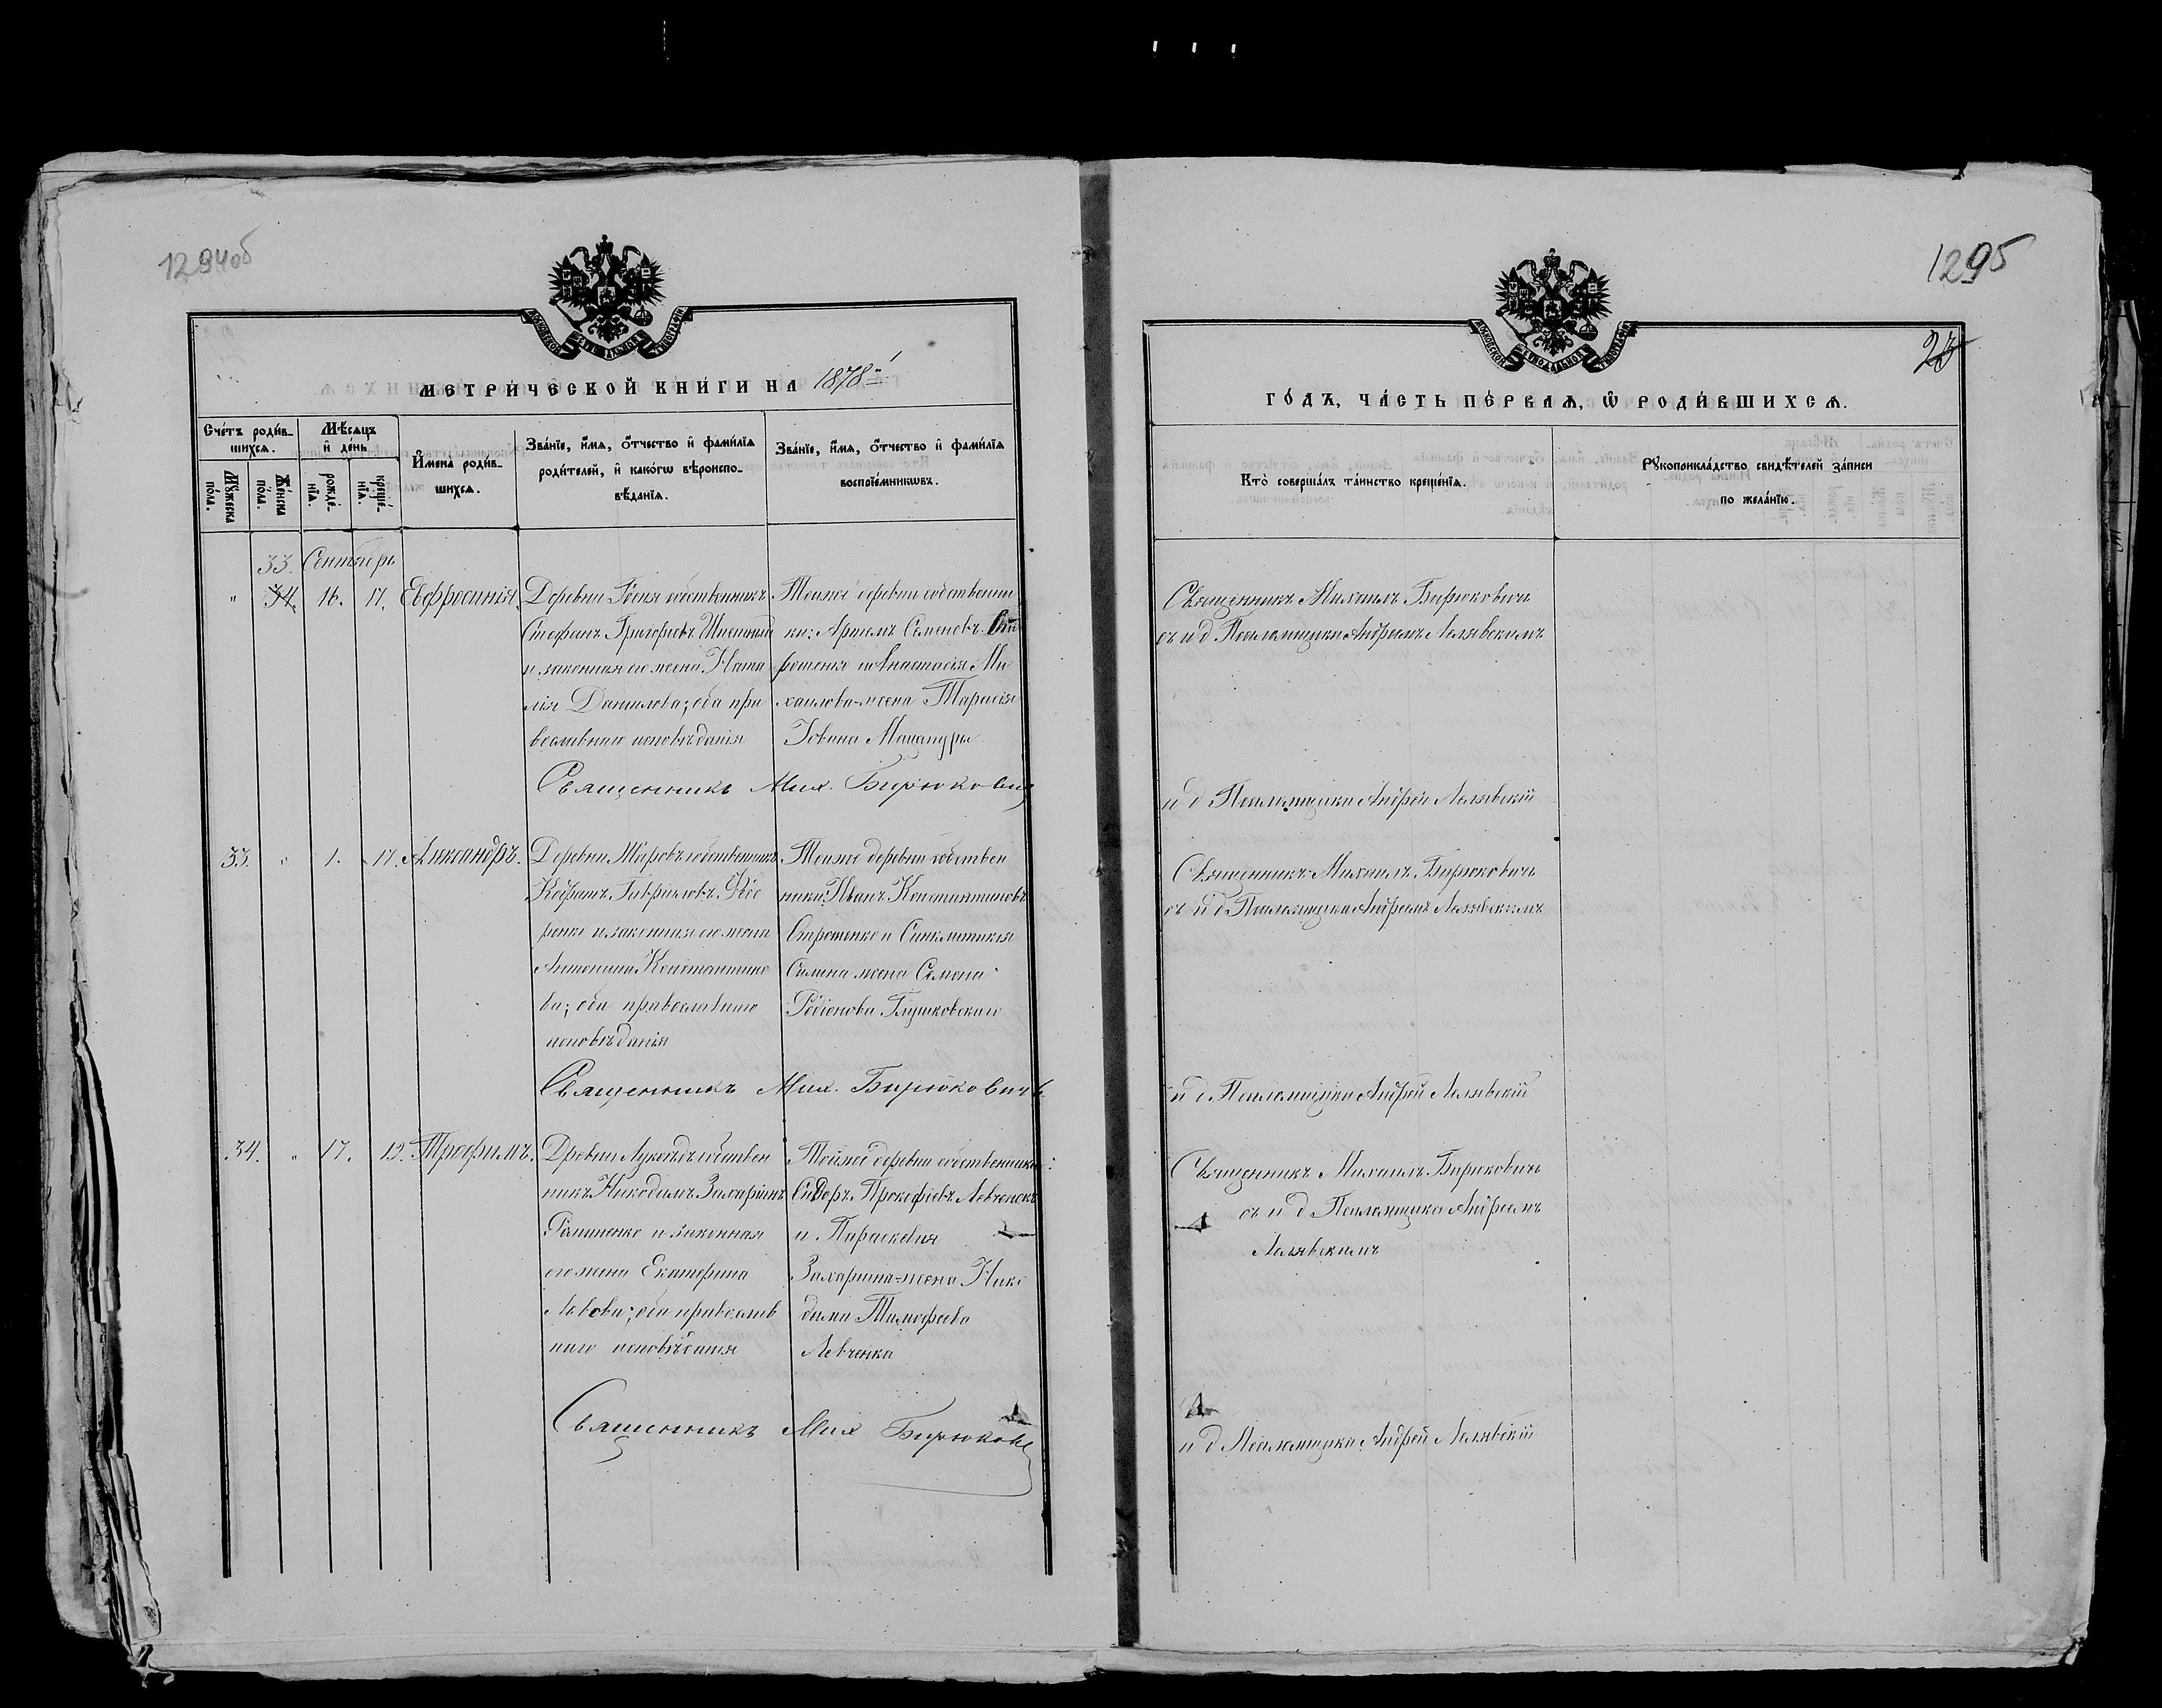 1294об
МОСКОВСКОЙ СѴНОДАЛЬНОЙ ТИПОГРАФІИ
МЕТРИ́ЧЕСКОЙ КНИ́ГИ НА 1878й
Сче́тъ роди́в-
шихсѧ.
Мꙋ́жеска по́ла.
Же́нска по́ла.
Мѣ́сѧцъ
и҆ де́нь
рожде́-
нїѧ.
креще́-
нїѧ.
И҆мена̀ роди́в-
шихсѧ.
Зва́нїе, и҆́мѧ, ѻ҆́тчество и҆ фами́лїѧ
роди́телей, и҆ како́гѡ вѣроиспо-
вѣ́данїѧ.
Зва́нїе, и҆́мѧ, ѻ҆́тчество и҆ фами́лїѧ
воспрїе́мникѡвъ.
33. Сентябрь
" 34. 16. 17. Евфросинія.
Деревни собственникъ
Стефанъ Григорьевъ
и законная его жена Ната
лія Данилова; оба пра
вославнаго исповѣданія
Тоийже деревни собственни
ки: Артемъ Семеновъ
рошенко и Анастасія Ми
хаилова жена Тарасія
Іовина Мацапуры
Священникъ Мих. Бирюкович
33. " 1. 17. Александръ.
Деревни собственникъ
Кодратъ Гавриловъ Ѳедо
ренко и законная его жена
Антонина Константино
ва; оба православнаго
исповѣданія
Тоийже деревни собствен
ники: Иванъ Константиновъ
Отрошенко и Синклитикія
Силина жена Семена
Родіонова Глушковскаго
Священникъ Мих. Бирюковичъ
34. " 17. 19. Трофимъ.
Древни собствен
никъ Никодимъ Захаріинъ
Романенко и законная
его жена Екатерина
Львова; оба православ
наго исповѣданія
Тойже деревни собственники:
Сидоръ Прокофіевъ Левченскъ
и Параскевія
Захарина жена Нико
дима Тимофеева
Левченка
Священникъ Мих Бирюкови
1295
23
МОСКОВСКОЙ СѴНОДАЛЬНОЙ ТИПОГРАФІИ
ГО́ДЪ, ЧА́СТЬ ПЕ́РВАѦ, Ѡ҆ РОДИ́ВШИХСѦ.
Кто̀ соверша́лъ та́инство креще́нїѧ.
Рꙋкоприкла́дство свидѣ́телей за́писи
по жела́нїю.
Священникъ Михаилъ Бирюковичъ
съ и д Псаломщика Андреемъ Лелявскимъ
и д Псаломщика Андрей Лелявскій
Священникъ Михаилъ Бирюковичъ
съ и д Псаломщика Андреемъ Лелявскимъ
и д Псаломщика Андрей Лелявскій
Священникъ Михаилъ Бирюковичъ
съ и д Псаломщика Андреемъ
Лелявскимъ
и д Псаломщика Андрей Лелявскій